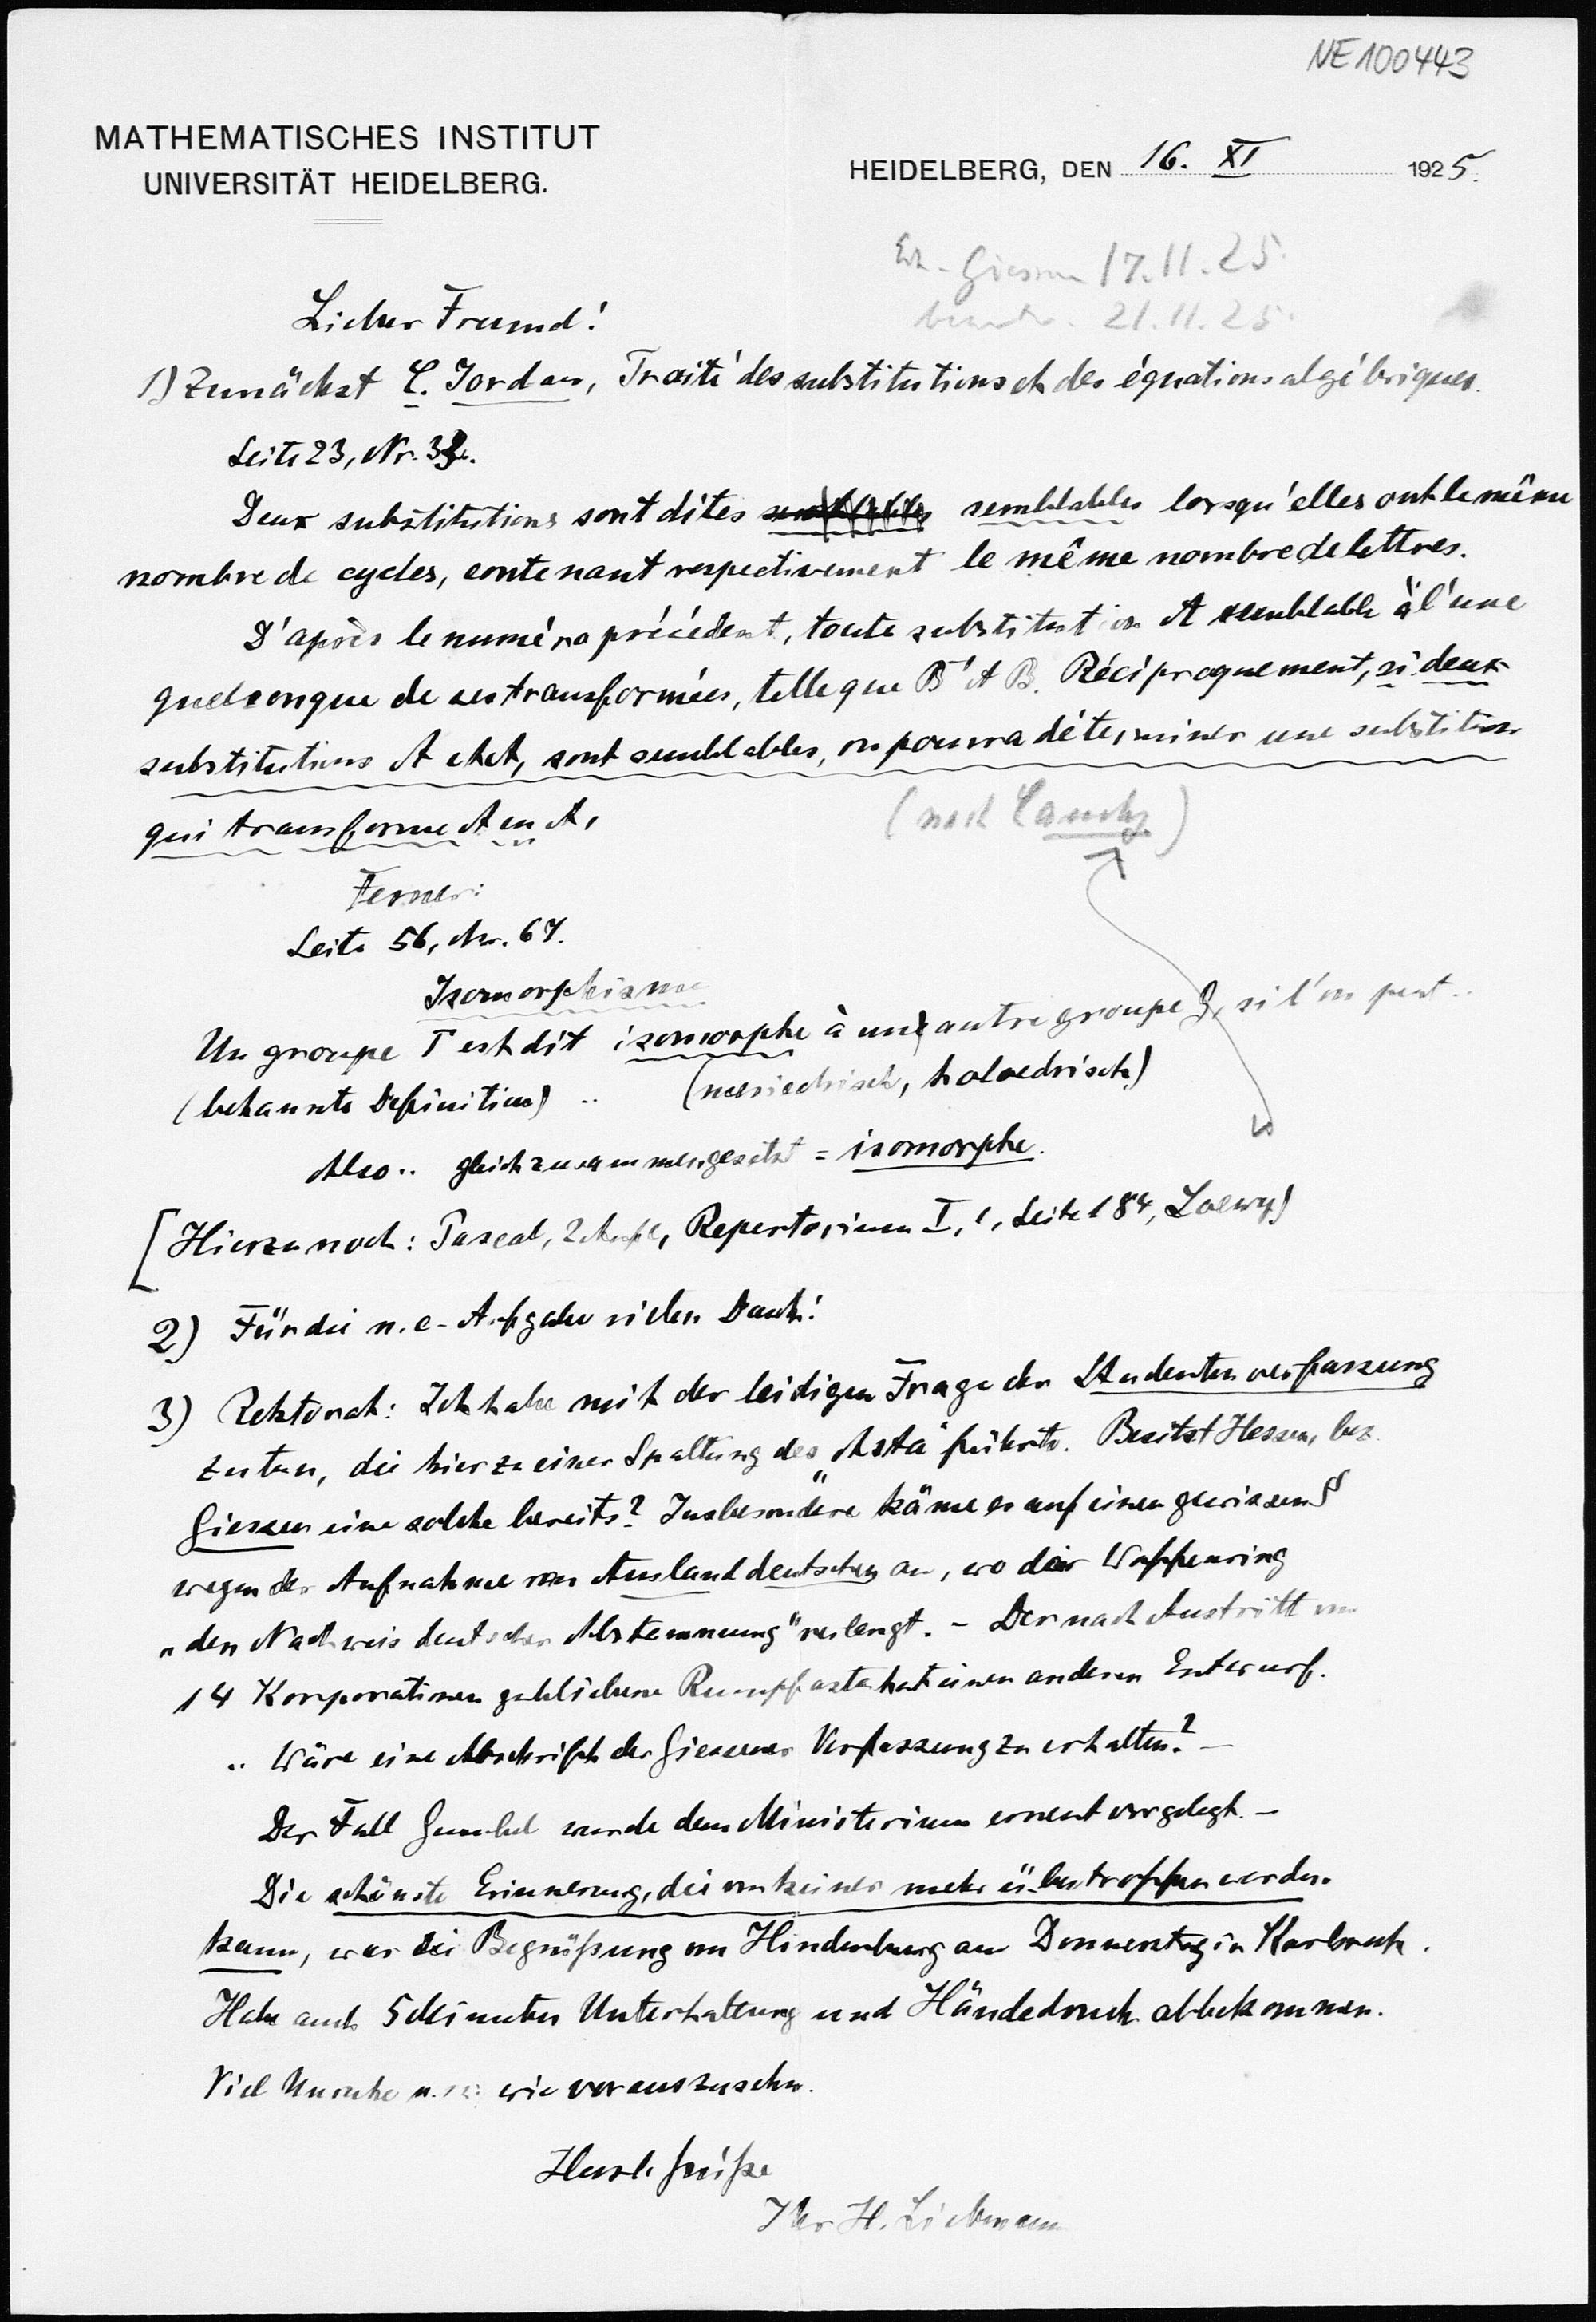 NE 100443
MATHEMATISCHES INSTITUT
UNIVERSITÄT HEIDELBERG.
HEIDELBERG, DEN 16. XI 1925.
Giessen 17.11.25.
21.11.25.
Lieber Freund!
1) Zunächst C. Jordan, Traité des substitutions et des équations algébriques.
Seite 23, Nr.
Deux substitutions sont dites semblables semblables lorsqu'elles ont le même
nombre de cycles, contenant respectivement le même nombre de lettres.
D'après le numéro précédent, toute substitution A semblable à l'une
quelconque de ses transformées, telle que B⁻¹AB. Réciproquement, si deux
substitutions A et A₁ sont semblables, on pourra déterminer une substitution
qui transforme A en A₁
(nach Cauchy)
Ferner:
Seite 56, Nr. 67.
Isomorphisme
Un groupe Γ est dit isomorphe à un autre groupe G, si l'on peut..
(bekannte Definition) .. (meriedrisch, holoedrisch)
Also.. gleichzusammengesetzt = isomorphe.
[Hierzu noch: Pascal, 2 Aufl, Repertorium I, 1, Seite 184, Loewy)
2) Für die n.e-Aufgabe vielen Dank!
3) Rektorat: Ich habe mit der leidigen Frage der Studentenverfassung
zu tun, die hier zu einer Spaltung des „Asta“ führte. Besitzt Hessen, bez.
Giessen eine solche bereits? Insbesondere käme es auf einen gewissen §
wegen der Aufnahme von Auslanddeutschen an, wo der Waffenring
„den Nachweis deutscher Abstammung“ verlangt. – Der nach Austritt von
14 Korporationen gebliebene Rumpfasta hat einen anderen Entwurf.
.. Wäre eine Abschrift der Giessener Verfassung zu erhalten? –
Der Fall Gumbel wurde dem Ministerium erneut vorgelegt. –
Die schönste Erinnerung, die von keiner mehr übertroffen werden
kann, war die Begrüßung von Hindenburg am Donnerstag in Karlsruhe.
Habe auch 5 Minuten Unterhaltung und Händedruck abbekommen.
Viel Unruhe wie vorauszusehn.
Herzl. Grüße
Ihr H. Liebmann